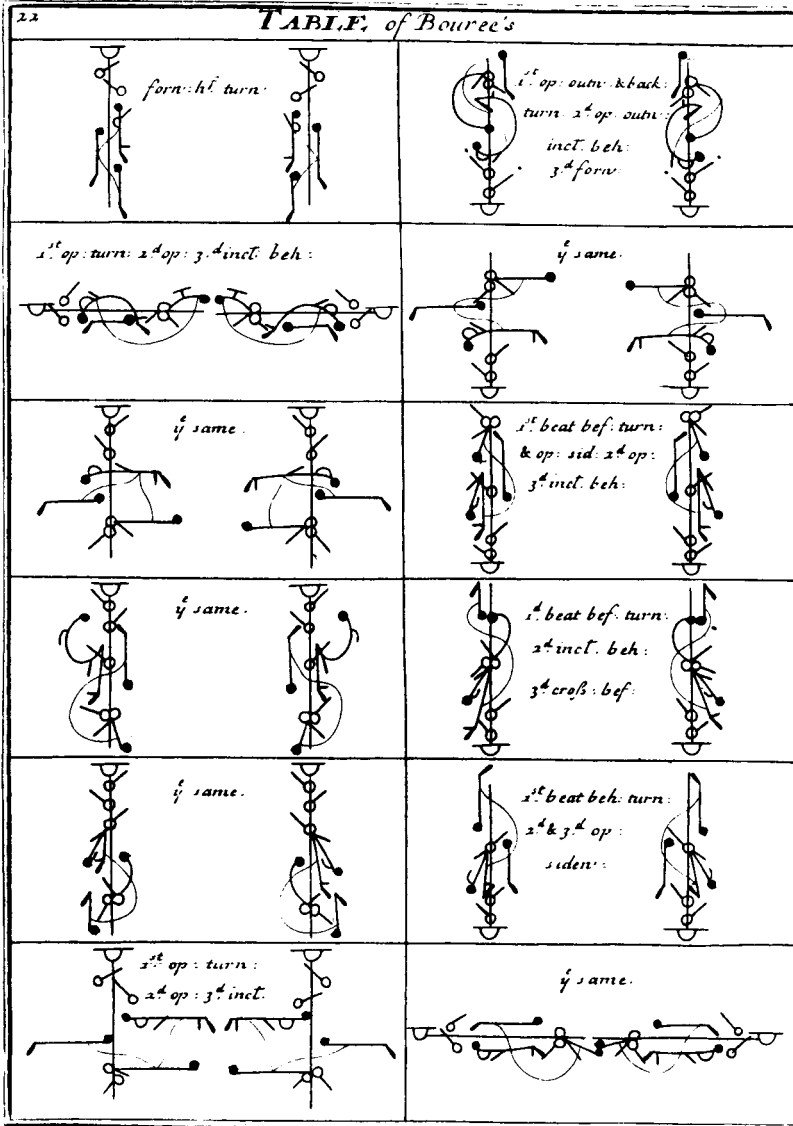 22
TABLE of Bouree's
forw: hf. turn.
1st op: outw: & back:
turn 2d op: outw:
incl. beh:
3d forw:
1st op: turn: 2d op: 3d incl. beh:
ye same.
ye same.
1st beat bef: turn:
& op: sid: 2d op:
3d incl. beh:
ye same.
1d beat bef: turn:
2d incl. beh:
3d croſs: bef:
ye same.
1st beat beh: turn:
2d & 3d op:
sidew:
1st op: turn:
2d op: 3d incl.
ye same.